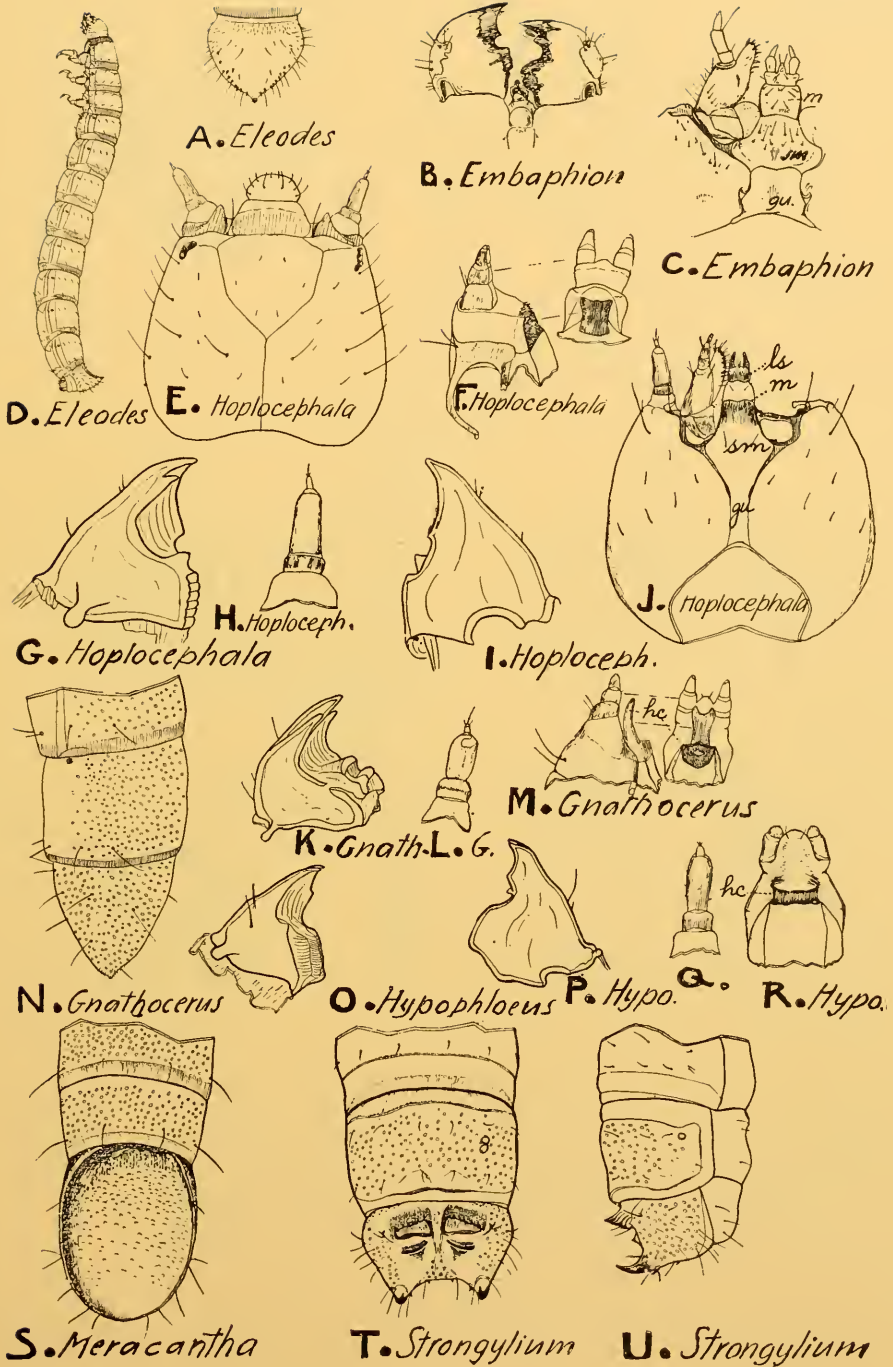 A. Eleodes
B. Embaphion
m
sm
gu.
C. Embaphion
D. Eleodes
E. Hoplocephala
F. Hoplocephala
ls
m
sm
gu
J. Hoplocephala
G. Hoplocephala
H. Hoploceph.
I. Hoploceph.
hc
K. Gnath.
L. G.
M. Gnathocerus
hc
N. Gnathocerus
O. Hypophloeus
P. Hypo.
Q.
R. Hypo.
8
S. Meracantha
T. Strongylium
U. Strongylium